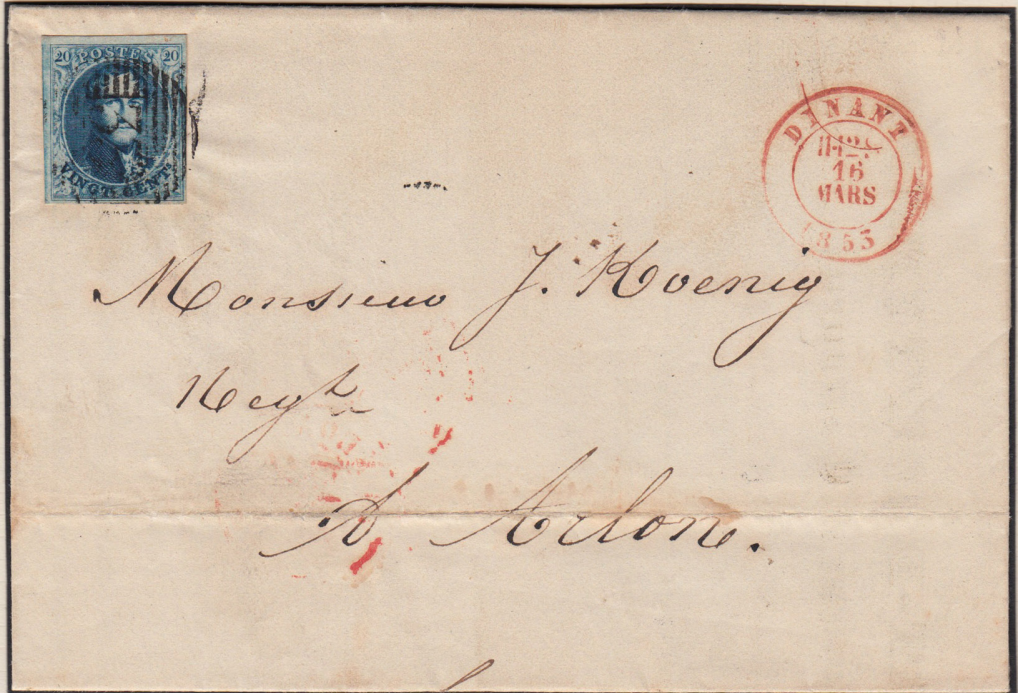 20 POSTES 20
VINGT CENTS
DINANT
16
MARS
1855
Monsieur J. Koenig
Negt
A Arlon.